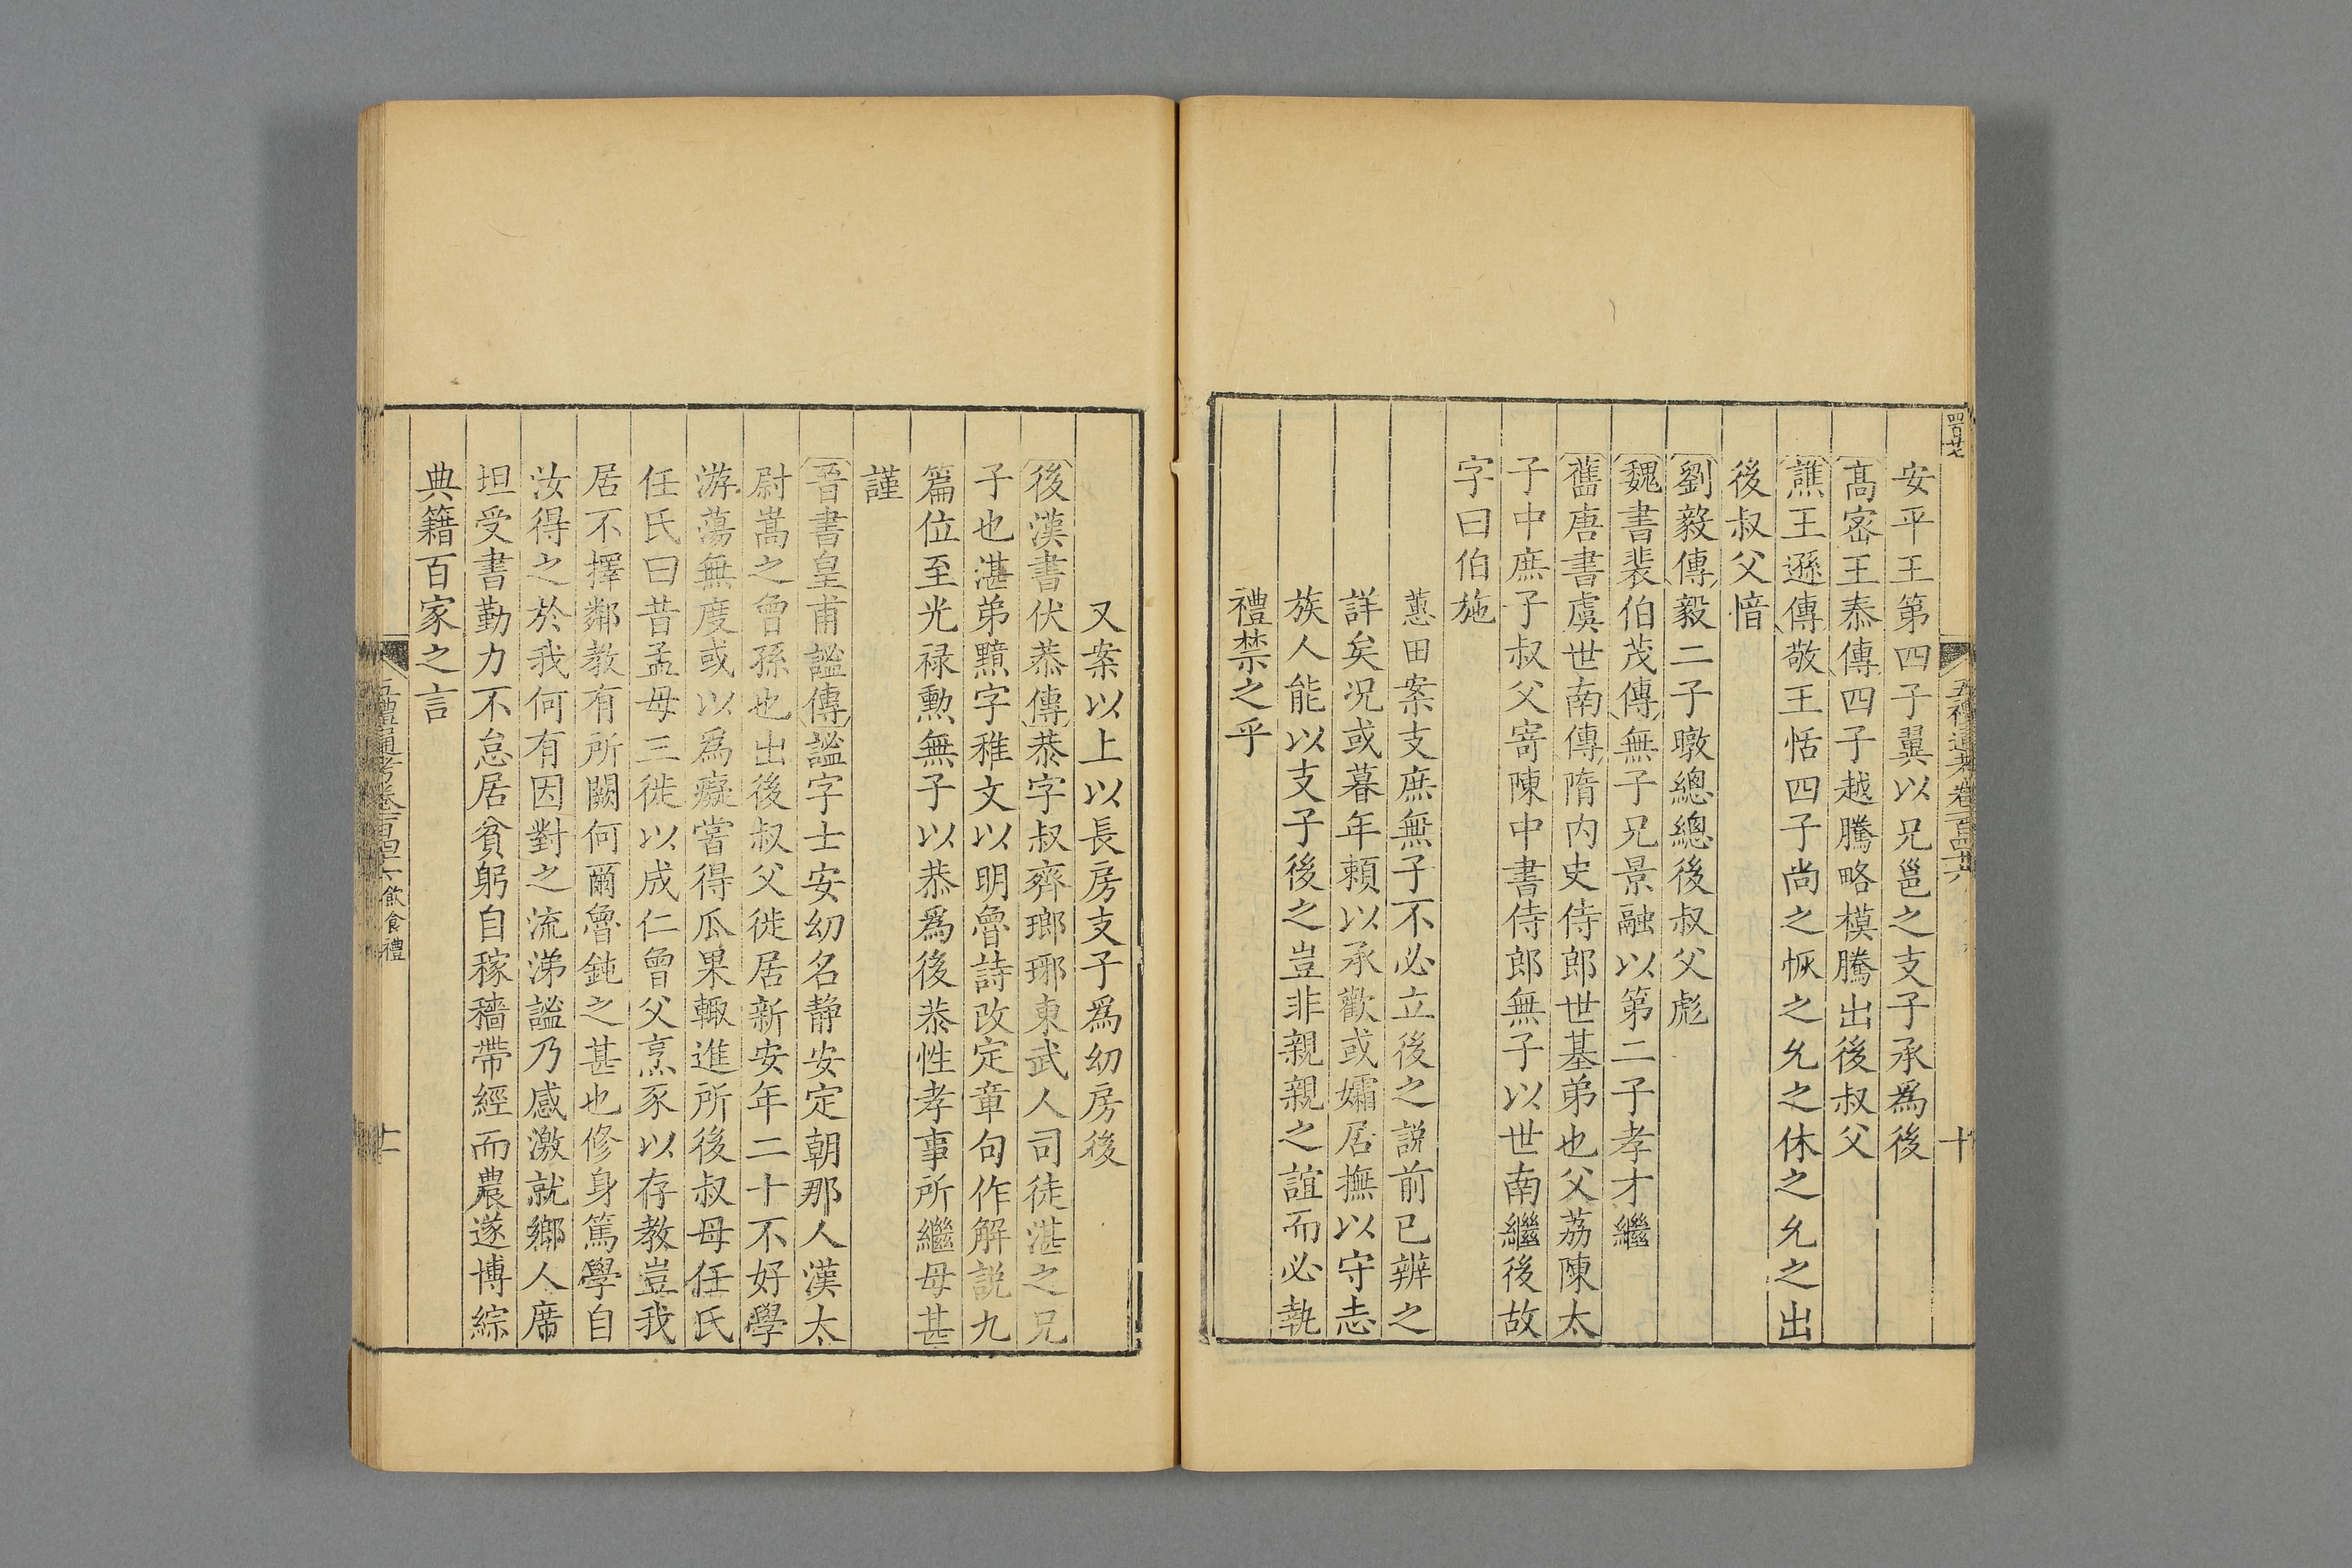 安平王第四子翼以兄邕之支子承爲後
高密王泰傳四子越騰略模騰出後叔父
譙王遜傳敬王恬四子尚之恢之允之休之允之出
後叔父愔
劉毅傳毅二子暾總總後叔父彪
魏書裴伯茂傳無子兄景融以第二子孝才繼
舊唐書虞世南傳隋内史侍郎世基弟也父荔陳太
子中庶子叔父寄陳中書侍郎無子以世南繼後故
字曰伯施
蕙田案支庶無子不必立後之説前已辨之
詳矣况或暮年頼以承歡或孀居撫以守志
族人能以支子後之豈非親親之誼而必執
禮禁之乎
又案以上以長房支子爲幼房後
後漢書伏恭傳恭字叔齊瑯琊東武人司徒湛之兄
子也湛弟黯字稚文以明魯詩改定章句作解説九
篇位至光禄勳無子以恭爲後恭性孝事所繼母甚
謹
晉書皇甫謐傳謐字士安幼名静安定朝那人漢太
尉嵩之曾孫也出後叔父徙居新安年二十不好學
游蕩無度或以爲癡嘗得瓜果輙進所後叔母任氏
任氏曰昔孟母三徙以成仁曾父烹豕以存教豈我
居不擇鄰教有所闕何爾魯鈍之甚也修身篤學自
汝得之於我何有因對之流涕謐乃感激就鄉人席
坦受書勤力不怠居貧躬自稼穡帶經而農遂博綜
典籍百家之言
五禮通考卷一百四十六 飲食禮
十一
五禮通考卷一百四十六
十